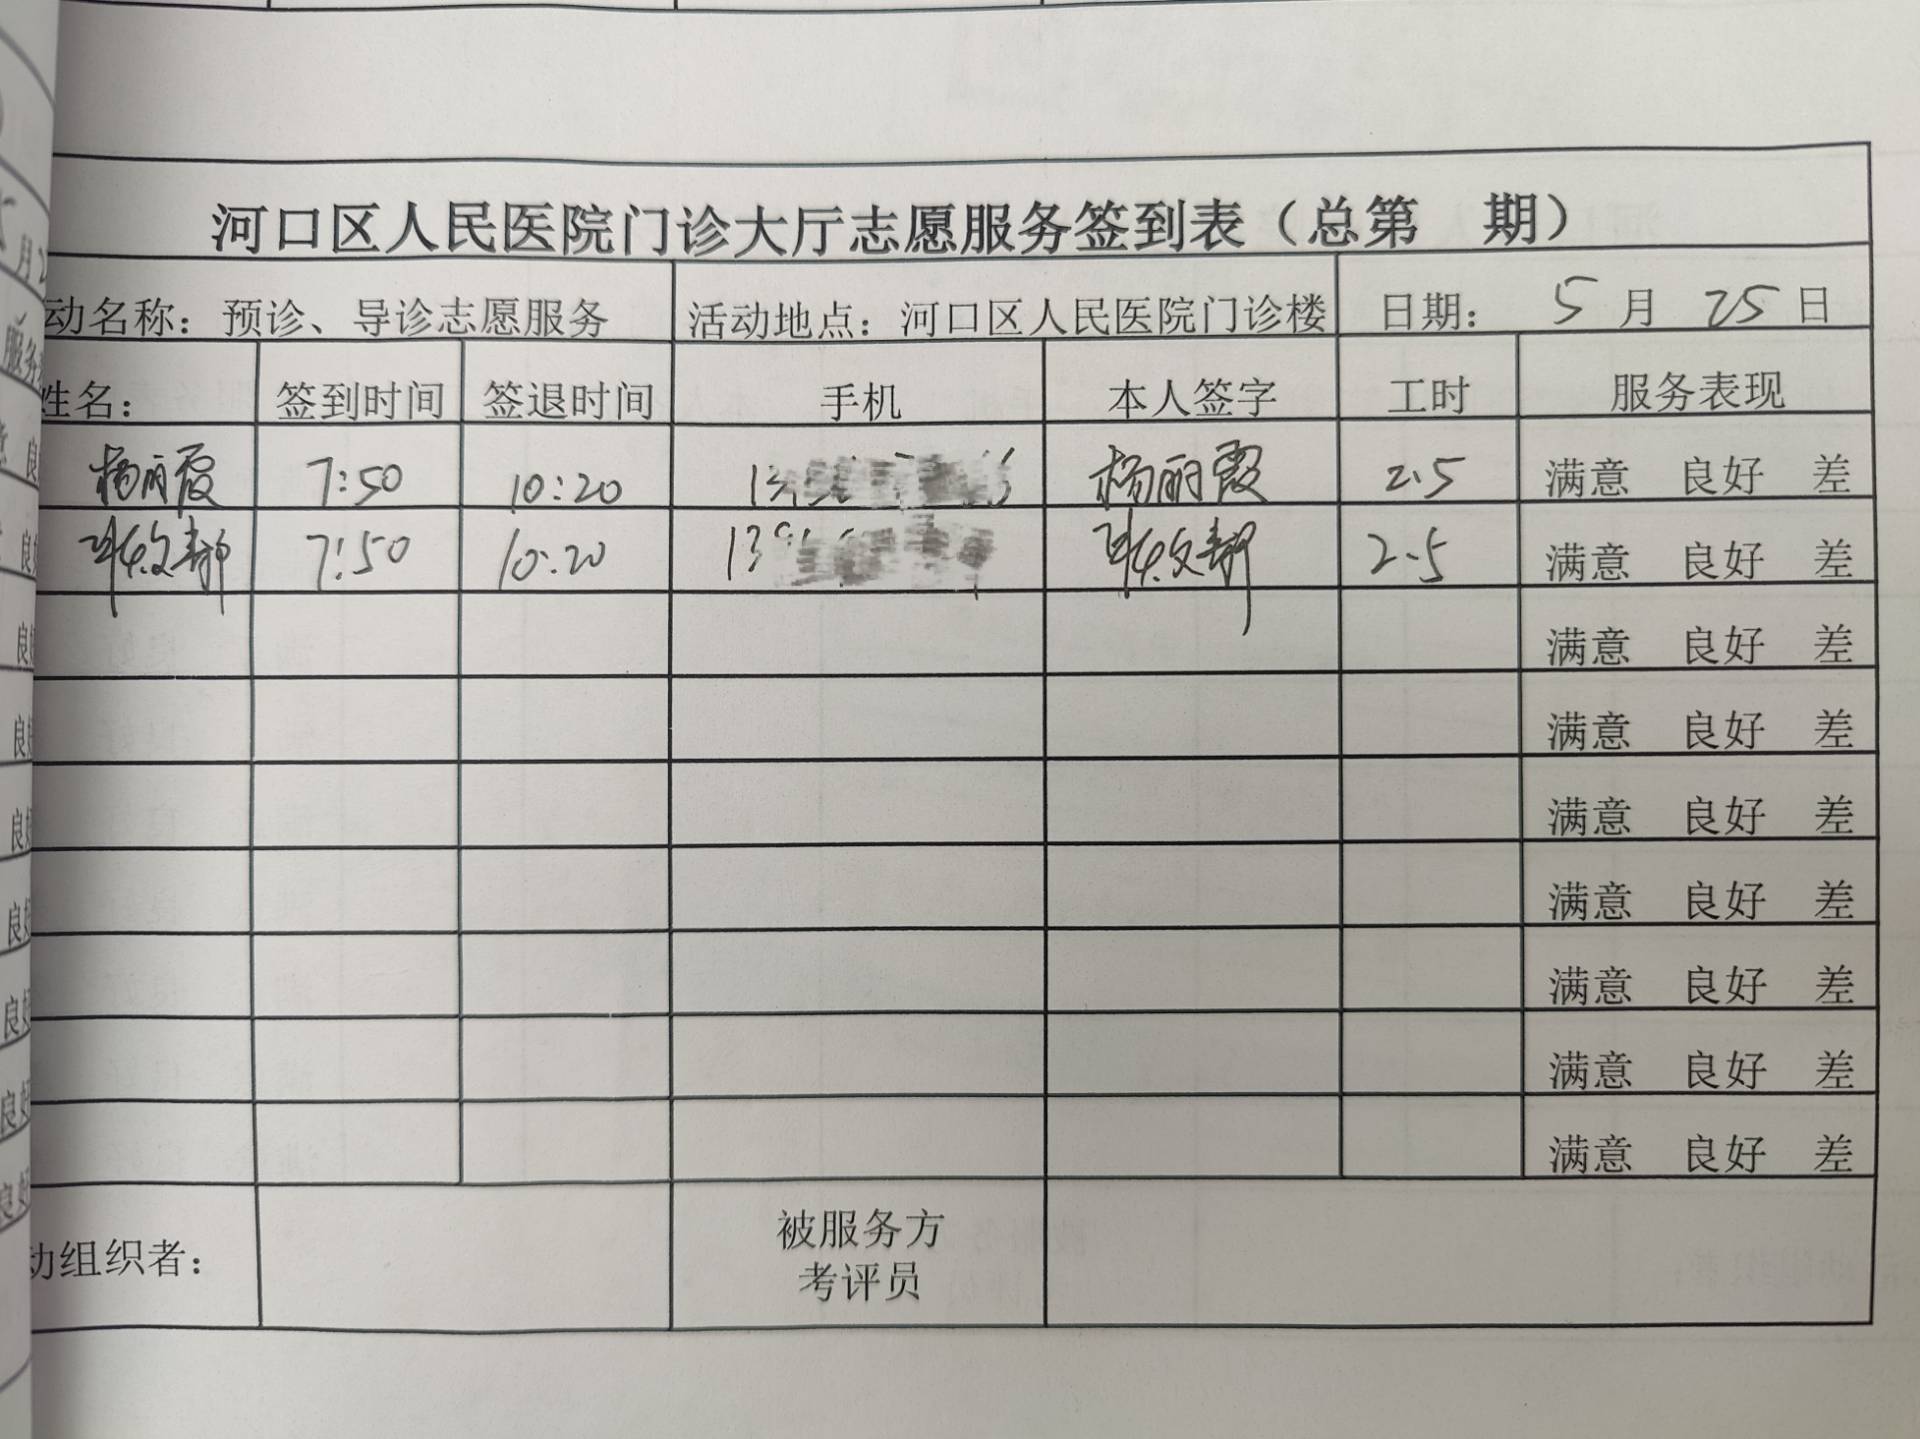 河口区人民医院门诊大厅志愿服务签到表（总第 期）
动名称：预诊、导诊志愿服务 活动地点：河口区人民医院门诊楼 日期： 5 月 25 日
姓名： 签到时间 签退时间 手机 本人签字 工时 服务表现
杨丽霞 7:50 10:20 杨丽霞 2.5 满意 良好 差
7:50 10:20 2.5 满意 良好 差
满意 良好 差
满意 良好 差
满意 良好 差
满意 良好 差
满意 良好 差
满意 良好 差
满意 良好 差
动组织者： 被服务方
考评员